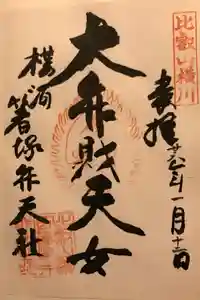 比叡山横川
奉拝
一月十二日
大弁財天女
横川
箸塚弁天社